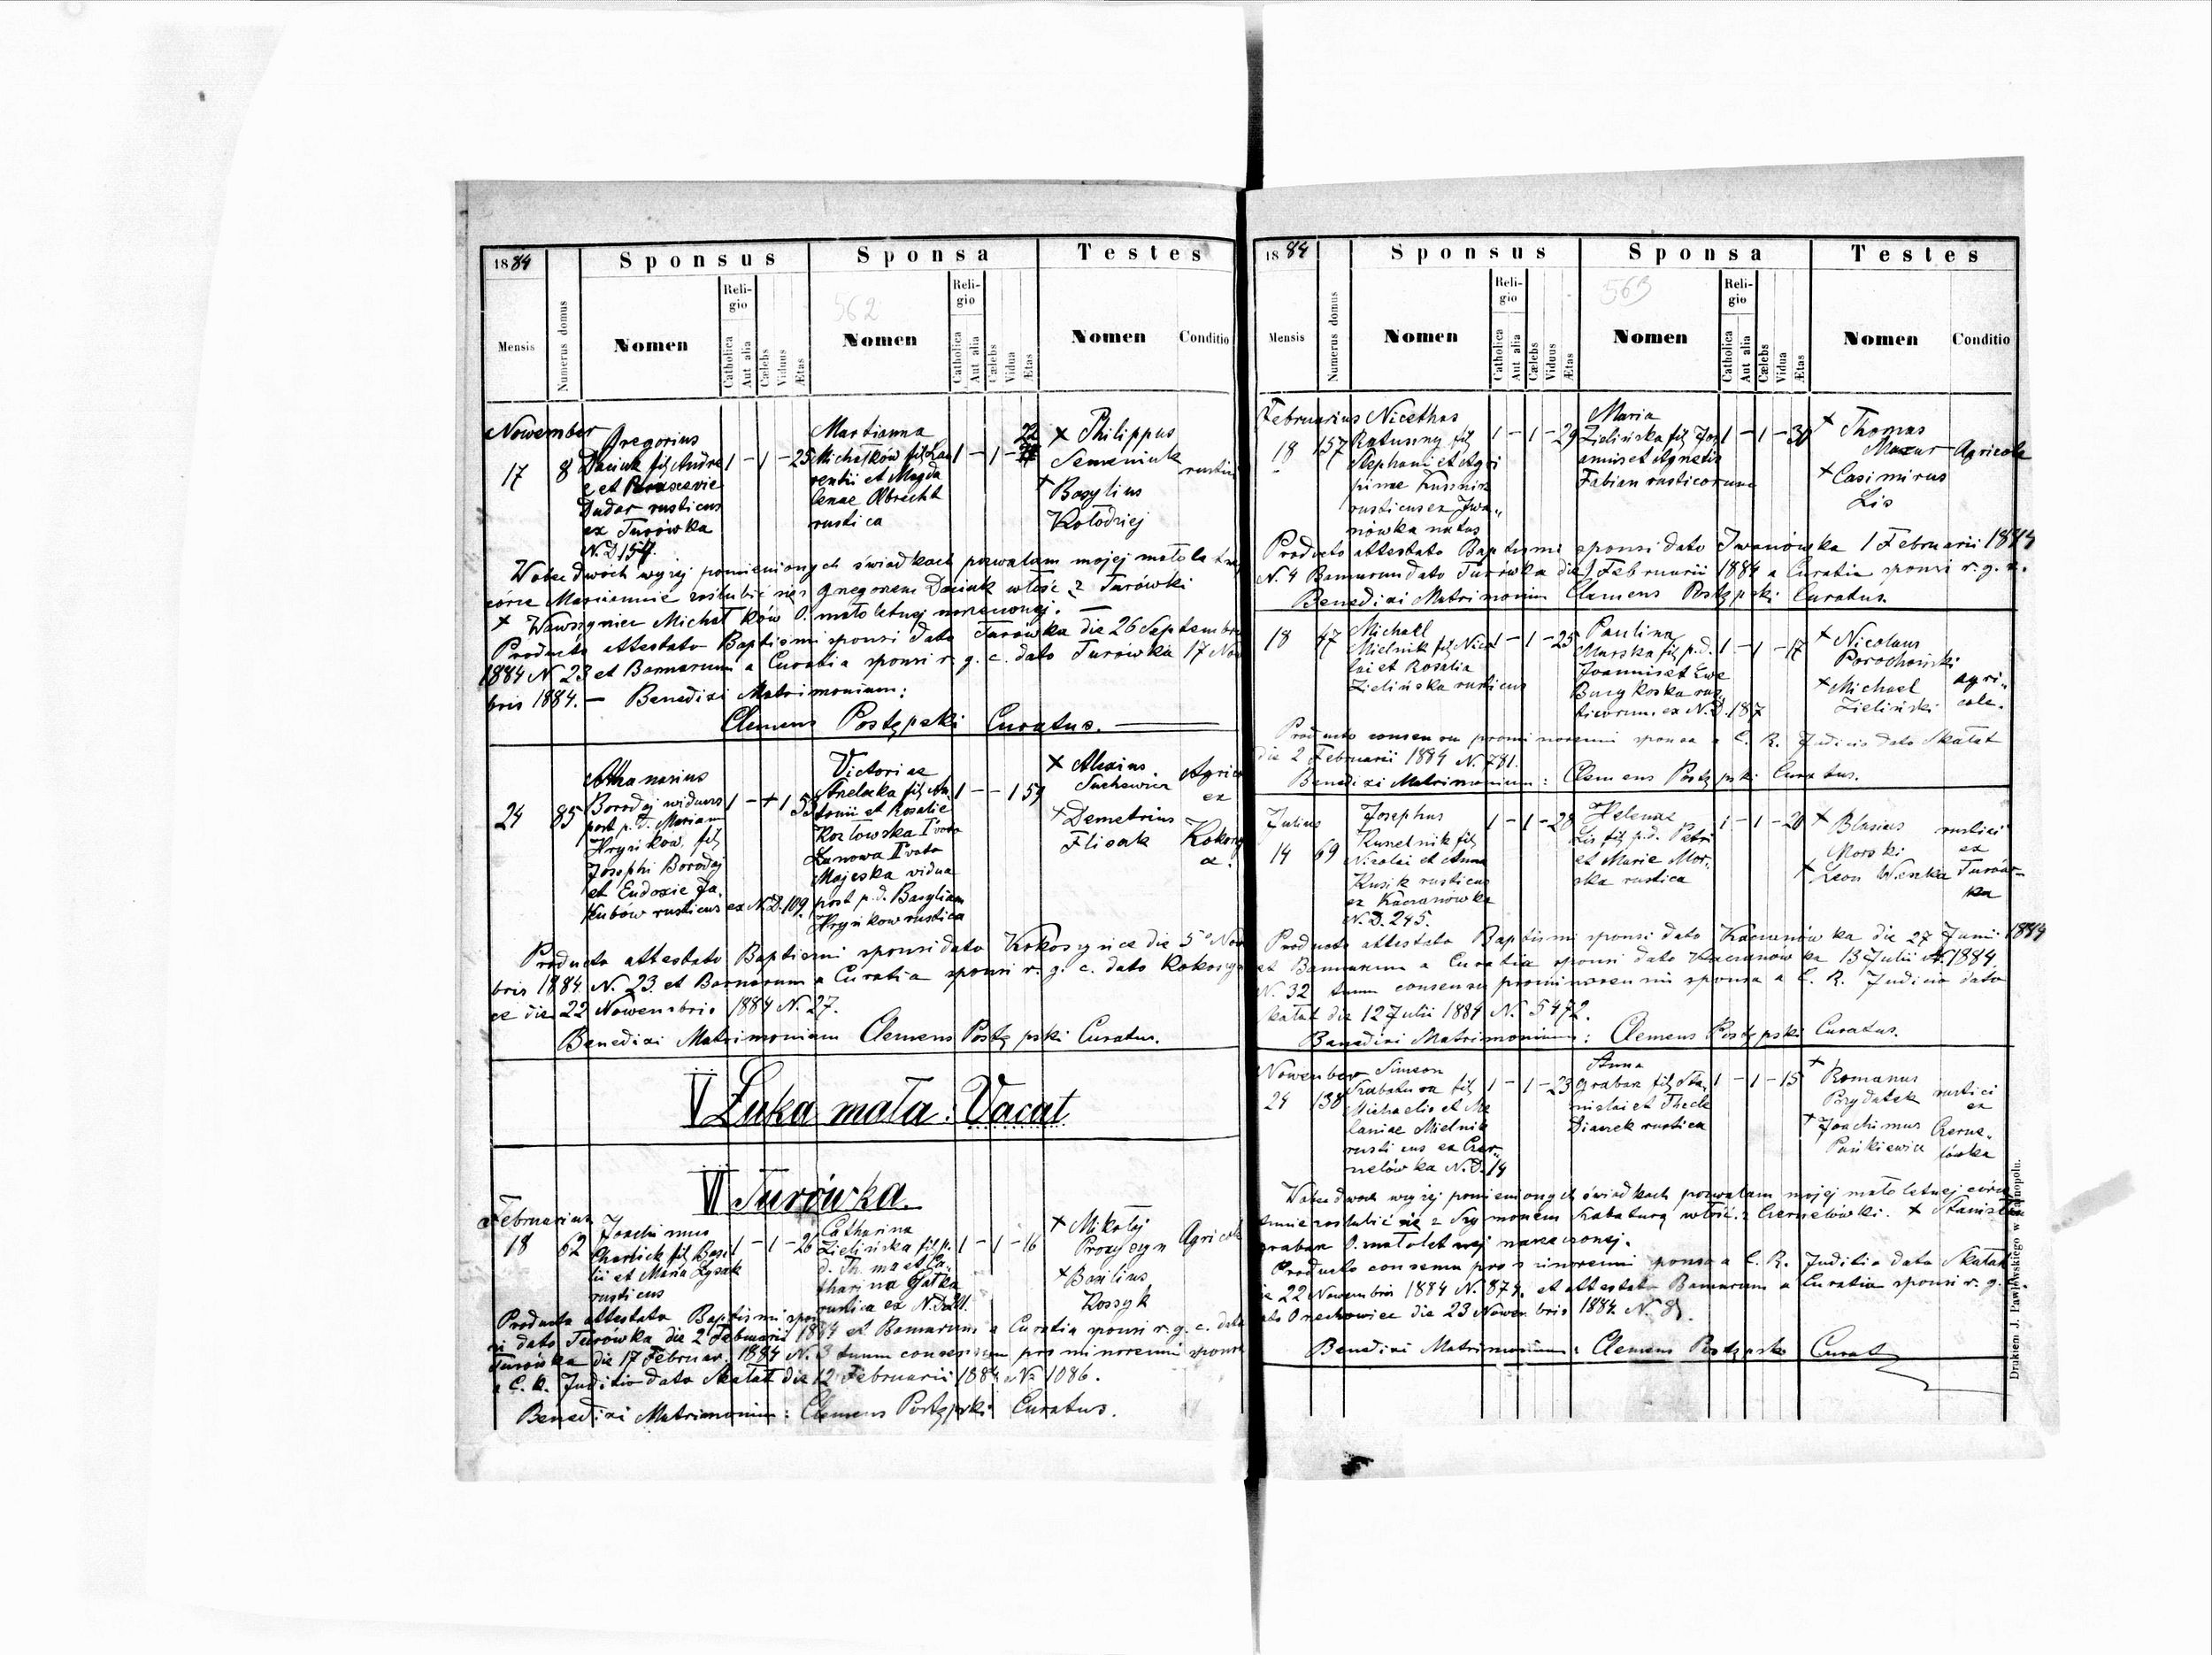 1884
Sponsus Sponsa Testes
Numerus domus
Religio Religio
562
Mensis Nomen Nomen Nomen Conditio
Catholica Aut alia Cælebs Viduus Ætas
Catholica Aut alia Cælebs Vidua Ætas
November
17 8
Gregorius
Daciuk filj Andre
e et
Dudar rusticus
ex Turówka
N.D. 154.
1 - 1 - 25
Martianna
Michałków filj Lau
rentii et Magda
lenae Olbrecht
rustica
1 - 1 - 22
+ Philippus
Semeniuk
+ Bazylius
Kołodziej
rustici
Wobec dwóch wyżej pomienionych świadkach pozwalam mojej małole
córce Marciannie zaślubić się z Gregorem Daciuk włość. z Turówki
+ Wawrzyniec Michałków O. małoletnej narzeczonej. —
Producto attestato Baptismi sponsi dato Turówka die 26 Septembr
1884 N. 23 et Bannorum a Curatia sponsi r. g. c. dato Turówka 17 Nov
bris 1884. — Benedixi Matrimonium:
Clemens Postępski Curatus.
24 85
Athanasius
Borodej widuus
post p.d. Mariam
Hryńków, filj
Josephi Borodej
et Eudoxie Ja
kubów rusticus ex N.D. 109.
1 - + 1 53
Victoriae
Strelecka filj An
tonii et Rosalie
Kozłowska I voto
Lunowa II voto
Majeska vidua
post p.d. Basylium
Hryńkow rustica
1 - - 1 59
+ Alexius
Suchewicz
+ Demetrius
Flisak
Agric
ex
Kokoszy
ce.
Producto attestato Baptismi sponsi dato Kokoszynce die 5º Nov
bris 1884 N. 23 et Bannorum a Curatia sponsi r. g. c. dato Kokoszyn
ce die 22 Nowembris 1884 N. 27.
Benedixi Matrimonium Clemens Postępski Curatus.
V Łuka mała: Vacat
VI Turówka.
Februarius
18 62
Joachimus
Charlick filj Basi
lii et Maria Łysak
rusticus
1 - 1 - 26
Catharina
Zielińska filj p.
d. Thoma et Ca
tharina Gałka
rustica ex N.D. 211.
1 - 1 - 16
+ Mikołaj
+ Basilius
Kossyk
Agricol
Producto attestato Baptismi spon
si dato Turówka die 2 Februarii 1884 et Bannorum a Curatia sponsi r. g. c. dato
Turówka die 17 Februar. 1884 N. 3 tuum consensum pro minorenni sponsa
a C. R. Juditio dato Skałat die 12 Februarii 1884 N. 1086.
Benedixi Matrimonium: Clemens Postępski Curatus.
1884
Sponsus Sponsa Testes
Numerus domus
Religio Religio
563
Mensis Nomen Nomen Nomen Conditio
Catholica Aut alia Cælebs Viduus Ætas
Catholica Aut alia Cælebs Vidua Ætas
Februarius
18 157
Nicethas
Ratuszny filj
Stephani et Agri
pinae
rusticus ex Iwa„
nówka natus
1 - 1 - 29
Maria
Zielińska filj Jo
annis et Agnetis
Fabian rusticorum
1 - 1 - 30
+ Thomas
Mazur
+ Casimirus
Lis
Agricole
Producto attestato Baptismi sponsi dato Iwanówka 1 Februarii 1884
N. 4 Bannorum dato Turówka die Februarii 1884 a Curatia sponsi r. g. c.
Benedixi Matrimonium Clemens Postępski Curatus.
18 47
Michael
Mielnik filj Nico
lai et Rosalia
Zielińska rusticus
1 - 1 - 25
Paulina
Murska filj p.d.
Joannis et Ewe
Burykoska rus„
ticorum. ex N.D. 187
1 - 1 - 17
+ Nicolaus
Porochoński
+ Michael
Zieliński
agri„
cole.
Producto consensu pro minorenni sponsa a C. R. Judicio dato Skałat
die 2 Februarii 1884 N. 781.
Benedixi Matrimonium: Clemens Postępski Curatus.
Julius
14 69
Josephus
Kuzelnik filj
Nicolai et Anna
Kusik rusticus
ex Kaczanówka
N.D. 245.
1 - 1 - 28
Helenae
Lis filj p.d. Petri
et Marie Mor„
ska rustica
1 - 1 - 20
+ Blasius
Morski
+ Leon Weszka
rustici
ex
Turów„
ka
Producto attestato Baptismi sponsi dato Kaczanówka die 27 Junii 1884
et Bannorum a Curatia sponsi dato Kaczanówka 13 Julii 1884
N. 32 tuum consensu pro minorenni sponsa a C. R. Judicio dato
Skałat die 12 Julii 1884 N. 5472.
Benedixi Matrimonium: Clemens Postępski Curatus.
Nowember
24 138
Simeon
Szabatura filj
Michaelis et Me
laniae Mielnik
rusticus ex Czer„
nelówka N.D. 14
1 - 1 - 23
Anna
Grabar filj Sta„
nislai et Thecle
rustica
1 - 1 - 15
+ Romanus
Przydatek
+ Joachimus
Pańkiewicz
rustici
ex
Czerne„
lówka
Wobec dwoch wyżej pomienionych świadkach pozwalam mojej małoletnej córce
Annie zaślubić się z Szymonem Szabaturą włość. z Czernelówki. + Stanisław
Grabar O. małoletnej narzeczonej.
Producto consensu pro minorenni sponsa a C. R. Juditio dato Skałat
die 22 Nowembris 1884 N. 874. et attestato Bannorum a Curatia sponsi r. g. c.
dato Orzechowiec die 23 Nowembris 1884. N. 8.
Benedixi Matrimonium: Clemens Postępski Curat
Drukiem J. Pawłowskiego w Tarnopolu.